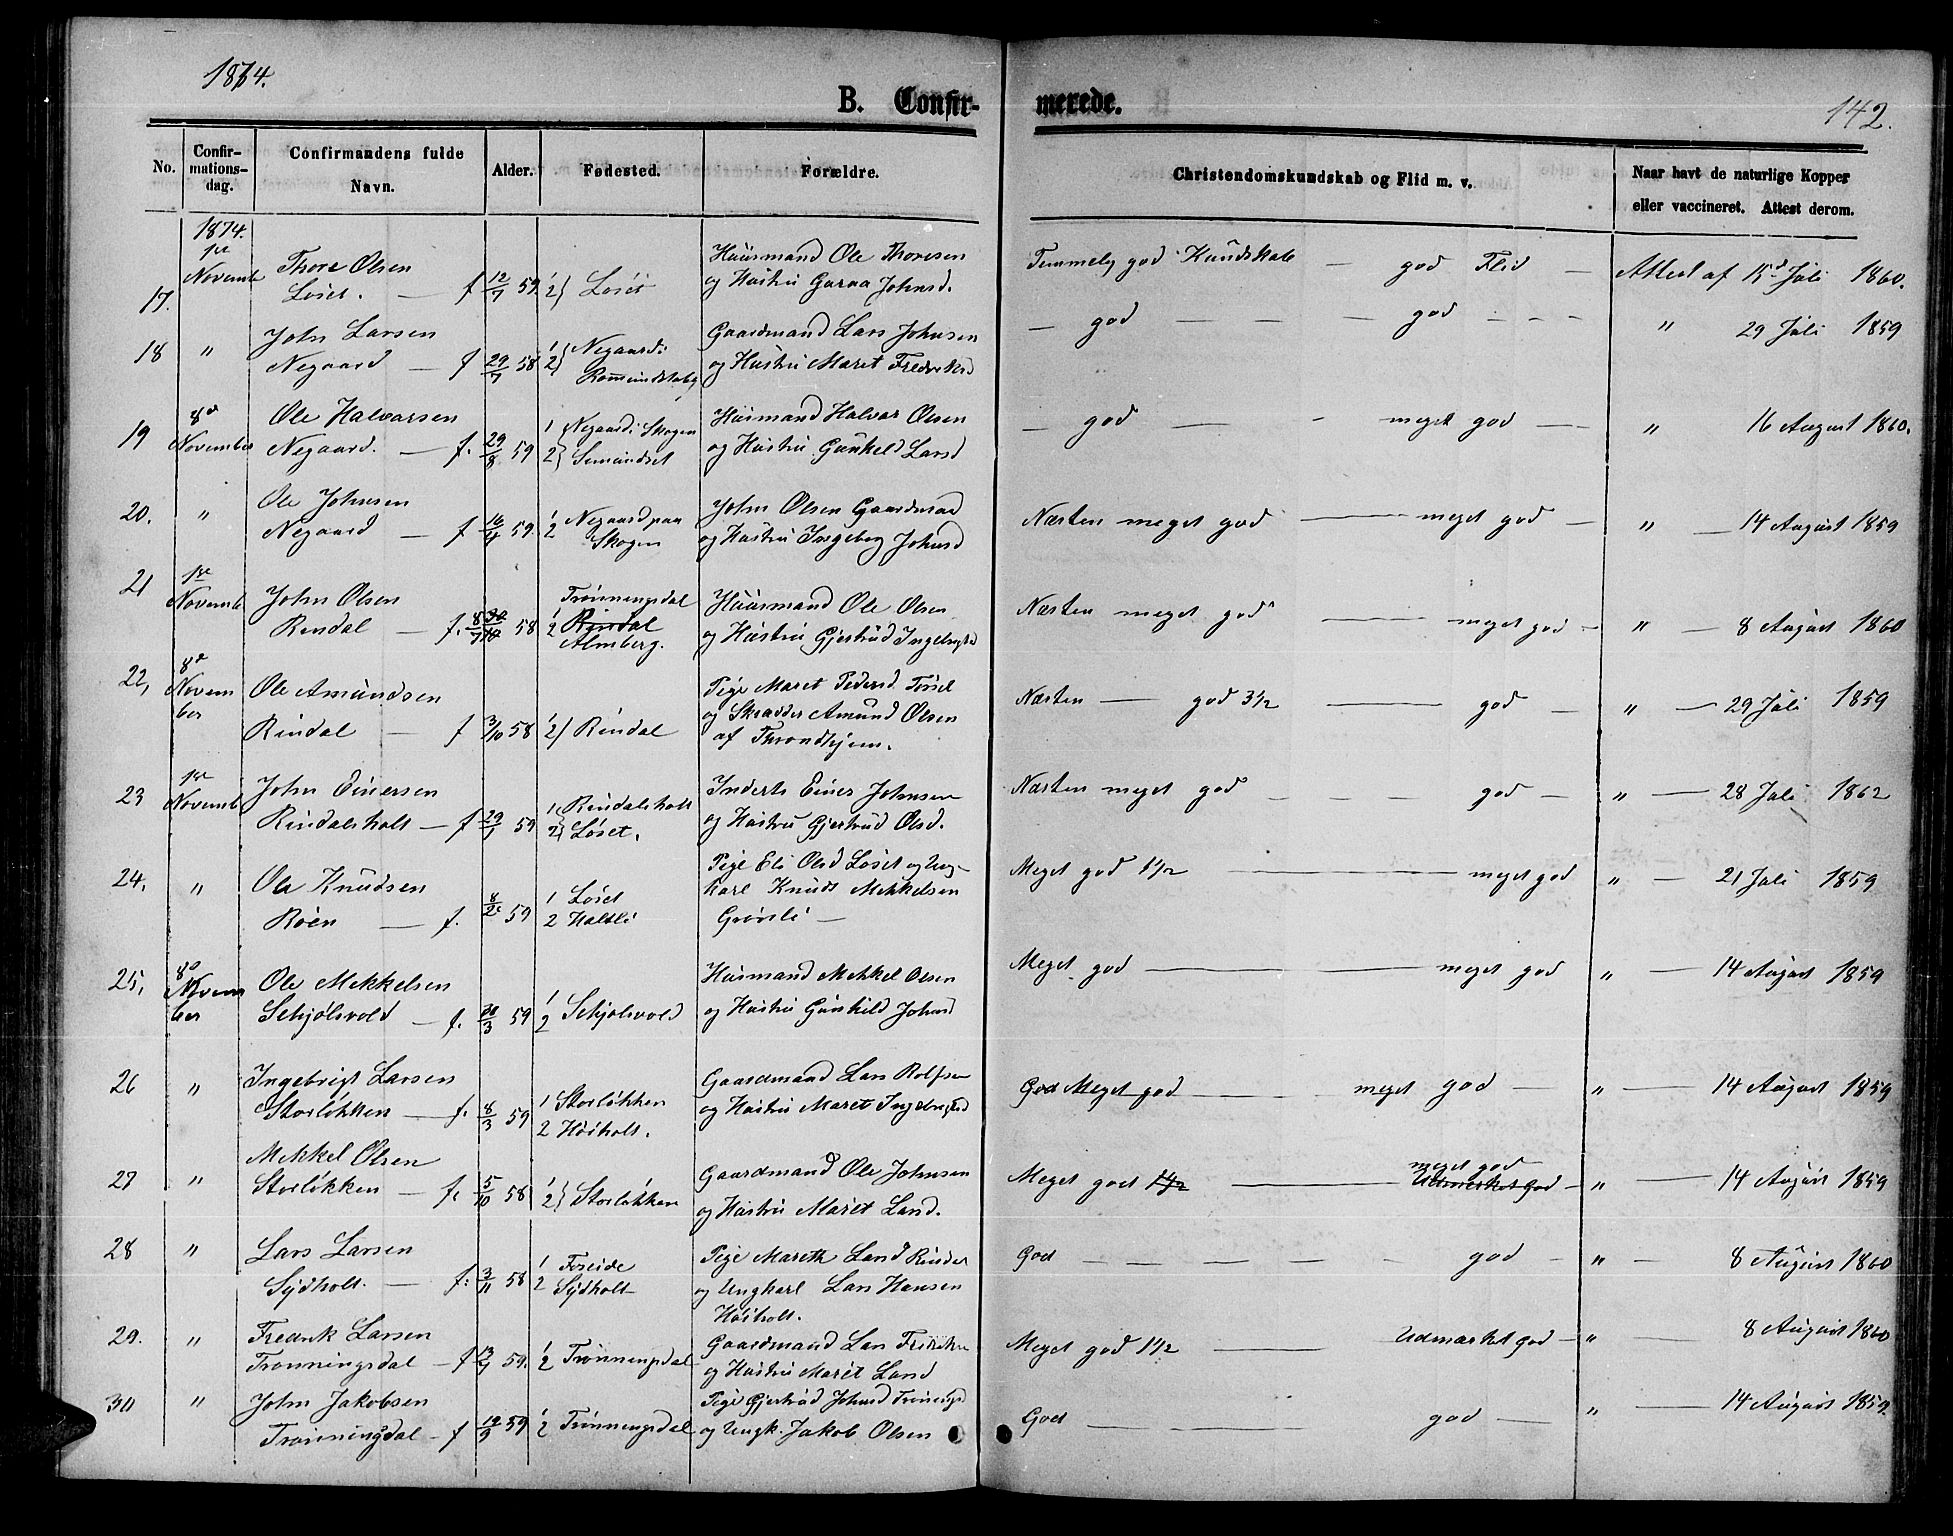 1874.
B. Confir-
merede.
142.
No.
Confir-
mations-
dag.
Confirmandens fulde
Navn.
Alder.
Fødested.
Forældre.
Christendomskundskab og Flid m. v.
Naar havt de naturlige Kopper
eller vaccineret. Attest derom.
1874.
17. 1ste Novemb Thore Olsen
Løset. — f 12/7 59 1 2} Løset
Huusmand Ole Thoresen
og Hustru Guraa Johnsd.
Temmelig god Kundskab — god Flid — Attest af 15d Juli 1860.
18 " John Larsen
Negaard — f 29/7 58 1 2} Negaards
Romundstabg
Gaardmand Lars Johnsen
og Hustru Maret Fredriksd
— god — — — god - - - " 29 Juli 1859
19 8d November Ole Halvarsen
Negaard. — f. 29/8 59 1 Negaards Skogen
2} Semundset
Husmand Halvar Olsen
og Hustru Gunhild Larsd
— god — - meget god — " 16 August 1860.
20. " Ole Johnsen
Negaard — f 16/4 59. 1 2 Negaard paa
Skogen
John Olsen Gaardmand
og Hustru Ingeborg Johnsd
Næsten meget god — meget god — " — 14 August 1859
21 1ste Novemb John Olsen
Rindal — f. 8/7 58
Trønningsdal
1 2 Rindal
Almberg.
Huusmand Ole Olsen
og Hustru Gjertrud Ingebrigtsd
Næsten meget god — meget god — " — 8 August 1860
22, 8d Novem
ber Ole Amundsen
Rindal — f 3/10 58 1 2} Rindal
Pige Maret Pedersd
og Skrædder Amund Olsen
af Throndhjem.
Næsten — god 3 1/2 — god — " — 29 Juli 1859
23 1ste Novemb John Einersen
Rindalsholt — f 29/1 59 1} Rindalsholt
2} Løset.
Inderts Einer Johnsen
og Hustru Gjertrud Olsd.
Næsten meget god — — — god — " — 28 Juli 1862
24. " Ole Knudsen
Røen — f. 8/2 59 1 Løset
2 Holtli
Pige Eli Olsd Løset og Ung-
karl Knud Mekkelsen
Grønli —
Meget god 1 1/2 — meget god " — 21 Juli 1859
25, 8d Novem
ber Ole Mekkelsen
Schjølsvold — f. 20/3 59 1 2 Schjølsvold
Husmand Mekkel Olsen
og Hustru Gunhild Johnsd
Meget god — meget god " — 14 August 1859
26 " Ingebrigt Larsen
Storløkken — f. 8/3 59 1 Storløkken
2 Høiholt.
Gaardmand Lars Rolfsen
og Hustru Maret Ingebrigtsd
God Meget god — meget god — " — 14 August 1859
27 " Mekkel Olsen
Storløkken — f. 5/10 58 1 2} Storløkken
Gaardmand Ole Johnsen
og Hustru Maret Larsd.
meget god
Meget god 1 1/2 — Udmærket god — " — 14 August 1859
28 " Lars Larsen
Sydholt. — f. 3/11 58 1 Foseide
2 Sydholt
Pige Mareth Larsd
og Ungkarl Lars Hansen
Høiholt.
God — — — — — god — " — 8 August 1860
29. " Fredrik Larsen
Trønningsdal — f 13/7 59. 1 2 Trønningsdal
Gaardmand Lars Fredriksen
og Hustru Maret Larsd
Meget god 1 1/2 — Udmærket god — " — 8 August 1860
30 " John Jakobsen
Trønningsdal — f 19/9 59 1 2 Trønningsdal
Pige Gjertrud Johnsd
og Ungk. Jakob Olsen
God — god — " — 14 August 1859.